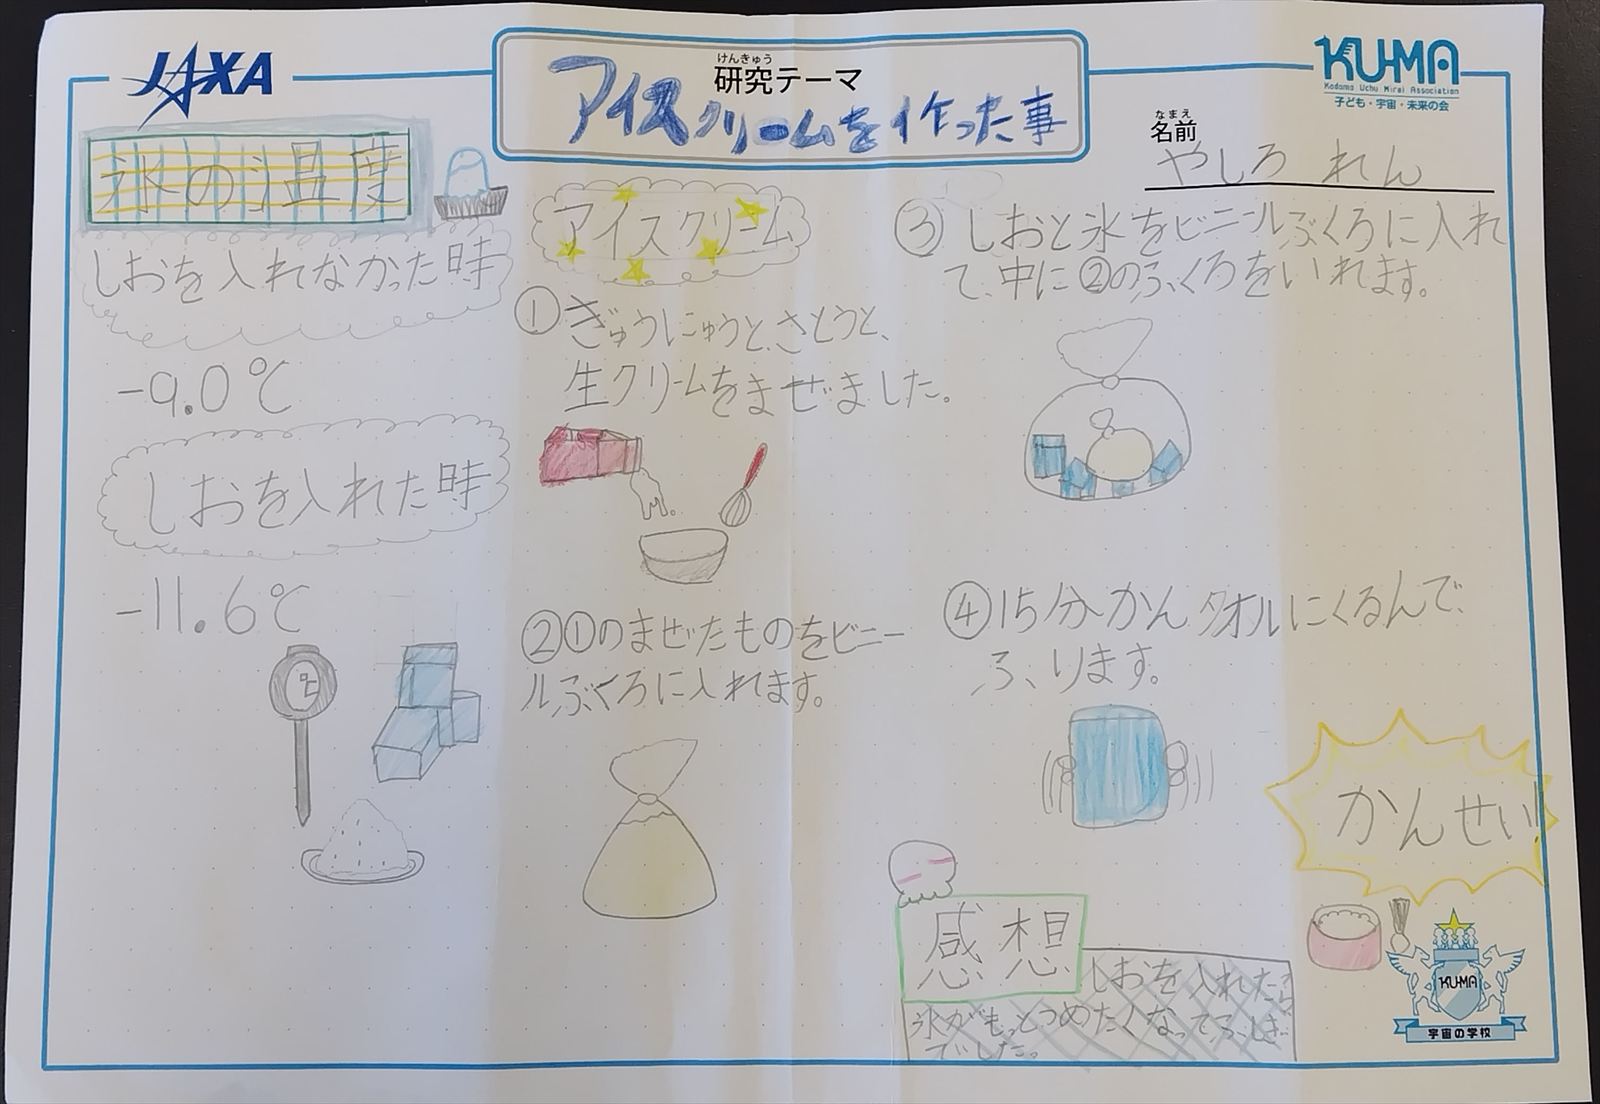 JAXA
けんきゅう
研究テーマ
アイスクリームを作った事
KU-MA
Kodomo Uchu Mirai Association
子ども・宇宙・未来の会
なまえ
名前
やしろ れん
氷の温度
しおを入れなかった時
-9.0℃
しおを入れた時
-11.6℃
℃
アイスクリーム
①ぎゅうにゅうと、さとうと、
生クリームをまぜました。
②①のまぜたものをビニー
ルぶくろに入れます。
③しおと氷をビニールぶくろに入れ
て、中に②のふくろをいれます。
④15分かんタオルにくるんで、
ふります。
かんせい!
感想
しおを入れたら
氷がもっとつめたくなってふしぎ
でした。
KU-MA
宇宙の学校